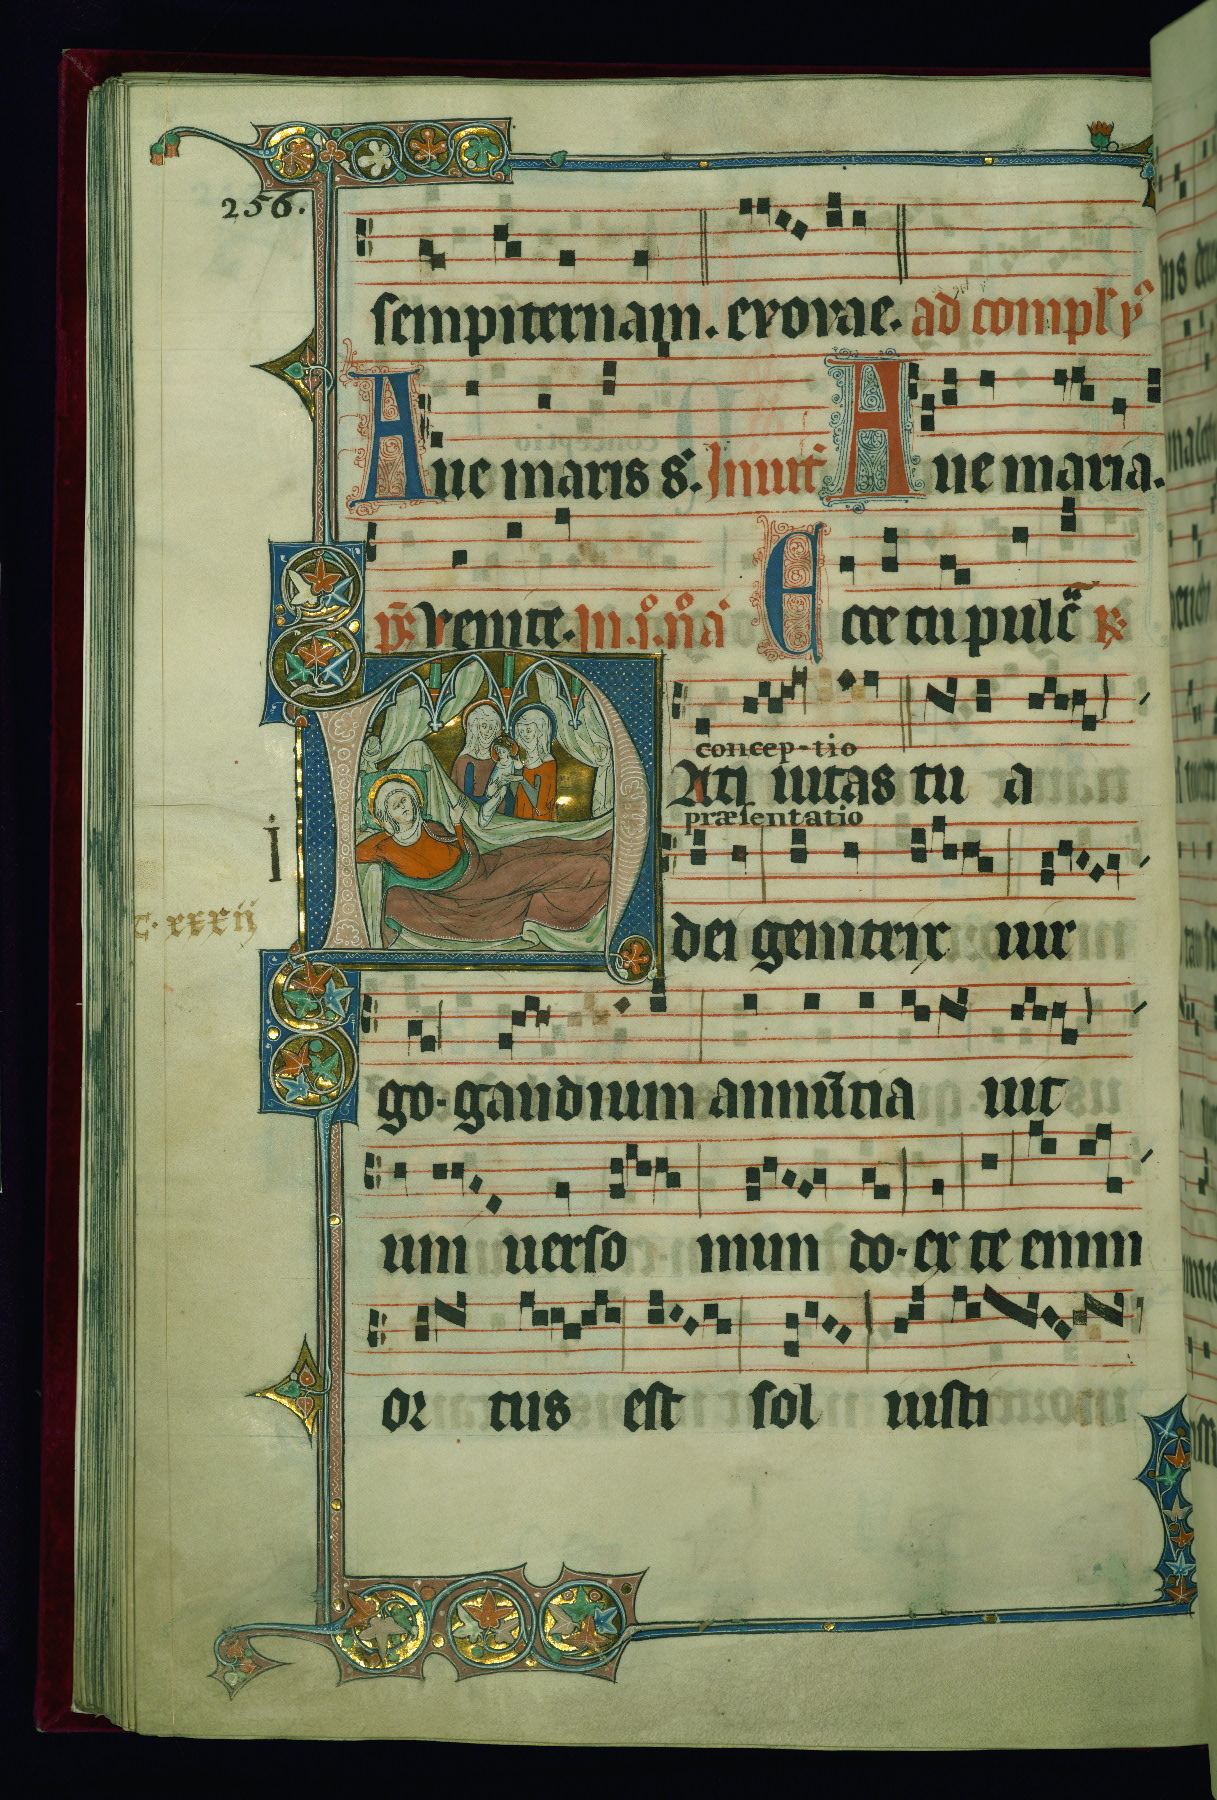 256.
sempiternam. evovae. ad compl y
Aue maris s. Inuit Aue maria.
ps venite. In .i. na Ecce tu pulc R
concep-tio
Nati uitas tu a
præsentatio
i
dei genitrix uir
C. xxxij
go. gaudium annūtia uit
uni uerso mun do. ex te enim
or tus est sol iusti